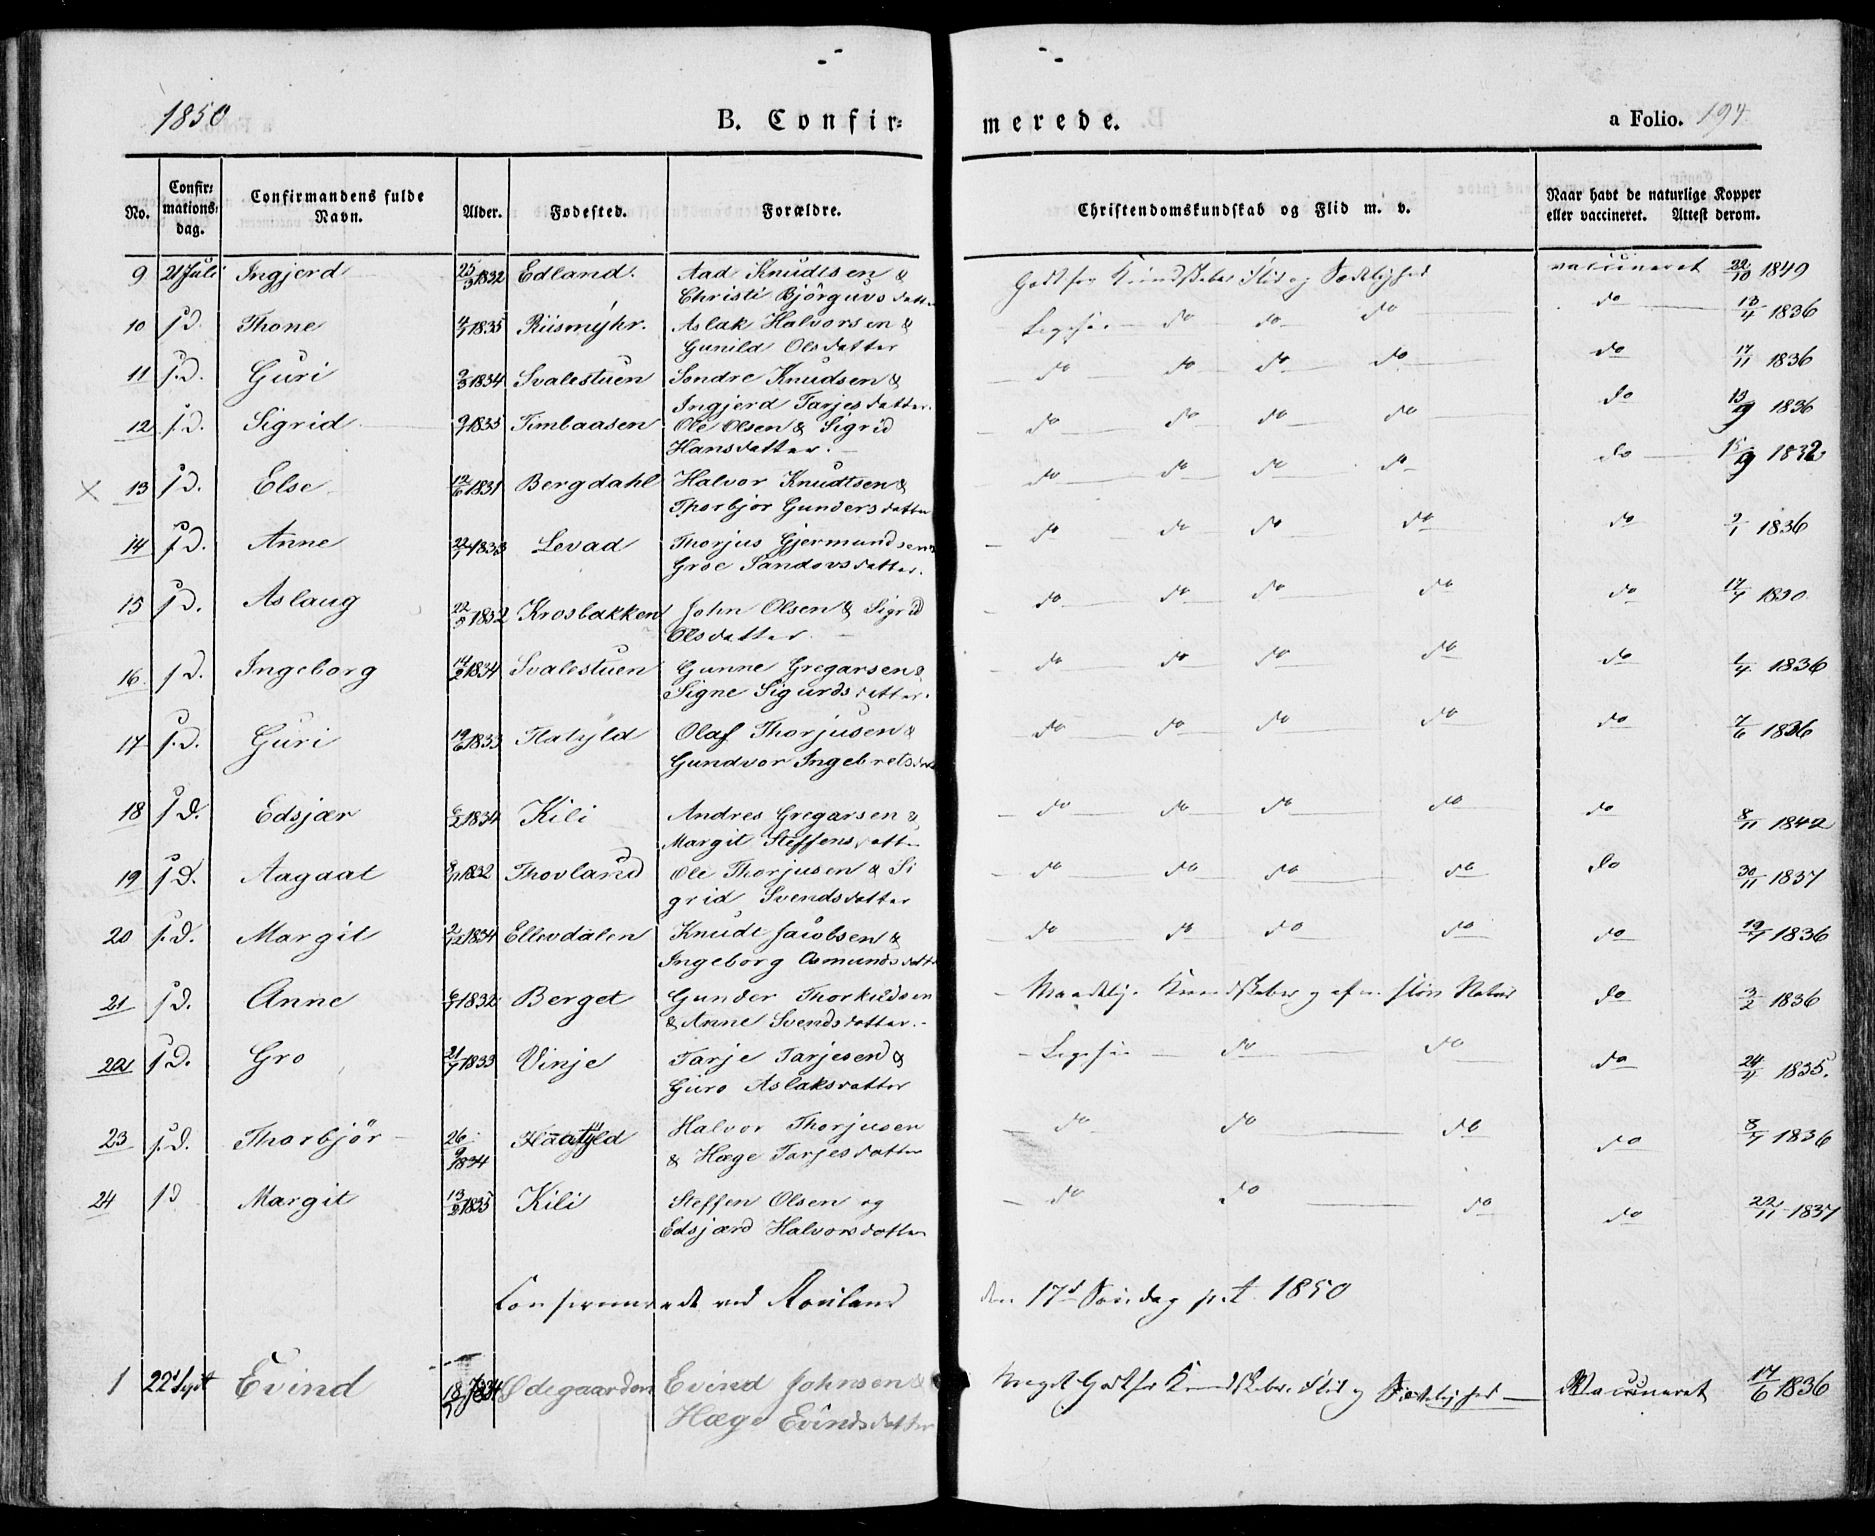 1850
B. Confirmerede.
a Folio. 194
No.
Confirmationsdag.
Confirmandens fulde Navn.
Alder.
Fødested.
Forældre.
Christendomskundskab og Flid m. v.
Naar havt de naturlige Kopper eller vaccineret. Attest derom.
9 21 Juli Ingjerd 25/3 1832 Edland. Aad Knudtsen & vaccineret 22/10 1849
Christi Björguvsdatter Godt for Kundskaber Flid og Sædelighed
10 s.D. Thone 1835 Riismÿhr. Aslak Halvorsen & Ligesaa do do do do 13/4 1836
Gunild Olsdatter
11 s.D. Guri 1834 Svalestuen Sondre Knudsen & do do do do do 17/11 1836
Ingjerd Tarjesdatter.
12 s.D. Sigrid 1835 Timbaasen Ole Olsen & Sigrid do do do do do 13/9 1836
Hansdatter.
× 13 s.D. Else 12/6 1831 Bergdahl Halvor Knudtsen & do do do do do 15/9 1832
Thorbjör Gundersdatter
14 s.D. Anne 22/7 1833 Levad Thorjus Gjermundsen & do do do do do 2/1 1836
Groe Sandovsdatter.
15 s.D. Aslaug 22/3 1832 Krosbakken John Olsen & Sigrid do do do do do 17/7 1830
Olsdatter.
16 s.D. Ingeborg 14/2 1834 Svalestuen Gunne Gregarsen & do do do do do 1/4 1836
Signe Sigurdsdatter.
17 s.D. Guri 19/6 1833 Flatÿld Olaf Thorjusen & do do do do do 7/6 1836
Gundvor Ingebretsdat
18 s.D. Edsjær 6/2 1834 Kili Andres Gregarsen & do do do do do 8/11 1842
Margit Steffensdatter
19 s.D. Aagaat 1832 Thovland Ole Thorjusen & Si do do do do do 30/11 1837
grid Svendsdatter
20 s.D. Margit 2/12 1834 Ellevdalen Knudt Jacobsen & do do do do do 19/7 1836
Ingeborg Osmundsdatt
21 s.D. Anne 6/7 1832 Berget Gunder Thorkildsen Maadelige Kundskaber og af en sløv Natur do 3/2 1836
& Anne Svendsdatter.
22 s.D. Gro 21/7 1833 Vinje Tarje Tarjesen & Ligesaa do do do 24/4 1835.
Guro Aslaksdatter
23 s.D. Thorbjör 26/9 1834 Halvor Thorjusen do do do do 8/7 1836
& Hæge Tarjesdatter
24 s.D Margit 13/2 1835 Kili Steffen Olsen og do do do do 22/11 1837
Edsjærd Halvorsdatter
Confirmerede ved Rouland den 17d Søndag p. t. 1850
1 22d Sept Evind 18/7 1834 Ødegaarden Evind Johnsen & Meget Godt for Kundskaber Flid og Sædelighed Vaccineret 17/6 1836
Hæge Evindsdatter